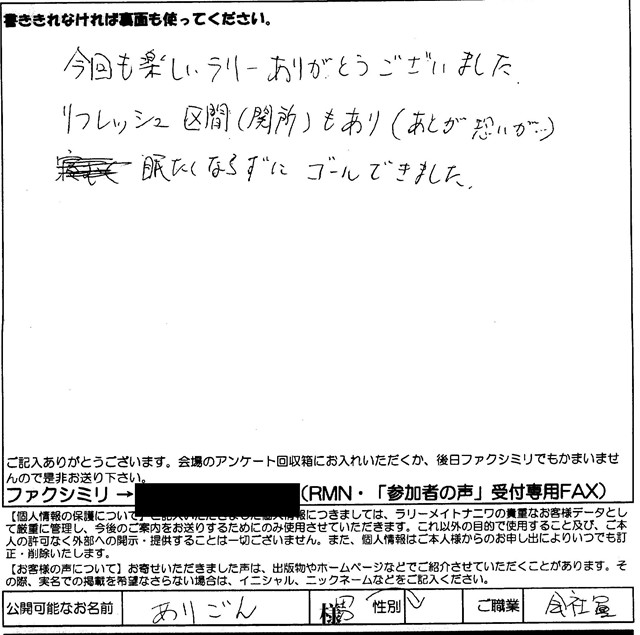 書ききれなければ裏面も使ってください。
今回も楽しいラリーありがとうございました.
リフレッシュ区間(関所)もあり(あとが恐いが…)
眠たくならずに ゴールできました.
ご記入ありがとうございます。会場のアンケート回収箱にお入れいただくか、後日ファクシミリでもかまいませ
んので是非お送り下さい。
ファクシミリ → (RMN・「参加者の声」受付専用FAX)
【個人情報の保護について】ご記入いただきました個人情報につきましては、ラリーメイトナニワの貴重なお客様データとし
て厳重に管理し、今後のご案内をお送りするためにのみ使用させていただきます。これ以外の目的で使用すること及び、ご本
人の許可なく外部への開示・提供することは一切ございません。また、個人情報はご本人様からのお申し出によりいつでも訂
正・削除いたします。
【お客様の声について】お寄せいただきました声は、出版物やホームページなどでご紹介させていただくことがあります。そ
の際、実名での掲載を希望なさらない場合は、イニシャル、ニックネームなどをご記入ください。
公開可能なお名前 ありごん 様 男 性別 ご職業 会社員